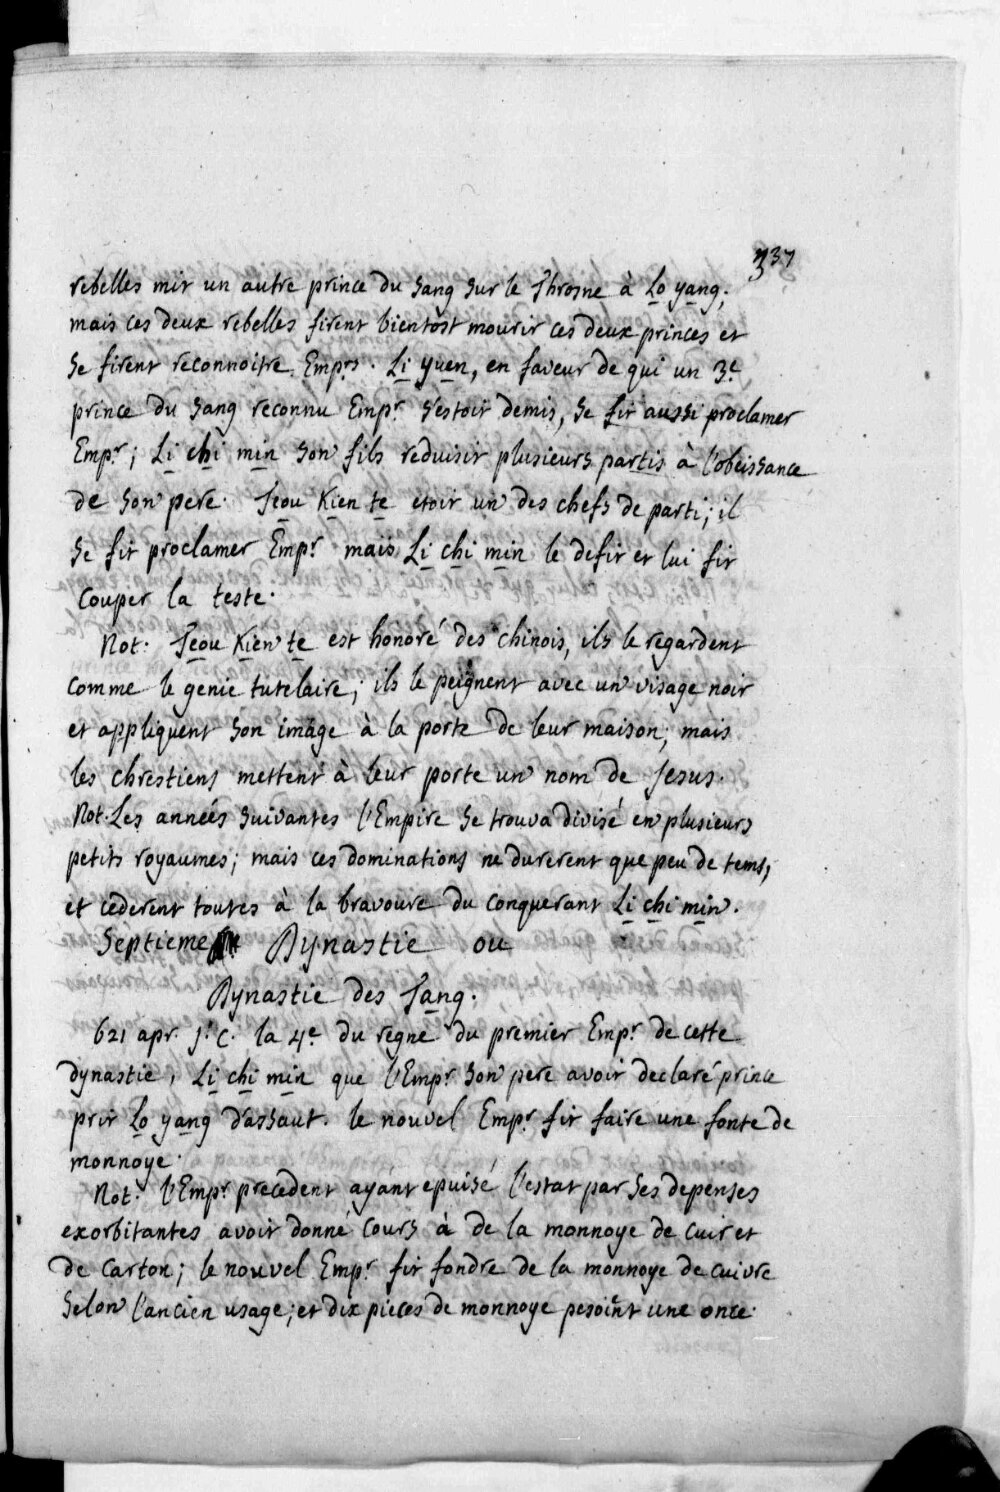 337
rebelles mit un autre prince du sang sur le Throsne à Lo yang,
mais ces deux rebelles firent bientost mourir ces deux princes et
se firent reconnoitre Emprs. Li yuen, en faveur de qui un 3e
prince du sang reconnu Empr s'estoit demis, se fit aussi proclamer
Empr; Li chi min son fils reduisit plusieurs partis à l'obeissance
de son pere. Teou Kien te etoit un des chefs de parti; il
se fit proclamer Empr mais Li chi min le defit et lui fit
couper la teste.
Not. Teou Kien te est honoré des chinois, ils le regardent
comme le genie tutelaire; ils le peignent avec un visage noir
et appliquent son image à la porte de leur maison; mais
les chrestiens mettent à leur porte un nom de Jesus.
Not. Les années suivantes l'Empire se trouva divisé en plusieurs
petits royaumes; mais ces dominations ne durerent que peu de tems,
et cederent toutes à la bravoure du conquerant Li chi min.
Septieme Dynastie ou
Dynastie des Tang.
621 apr. J. C. la 4e du regne du premier Empr de cette
dynastie, Li chi min que l'Empr son pere avoit declaré prince
prit Lo yang d'assaut. le nouvel Empr fit faire une fonte de
monnoye.
Not. l'Empr precedent ayant epuisé l'estat par ses depenses
exorbitantes avoit donné cours à de la monnoye de cuir et
de carton; le nouvel Empr fit fondre de la monnoye de cuivre
selon l'ancien usage; et dix pieces de monnoye pesoint une once.